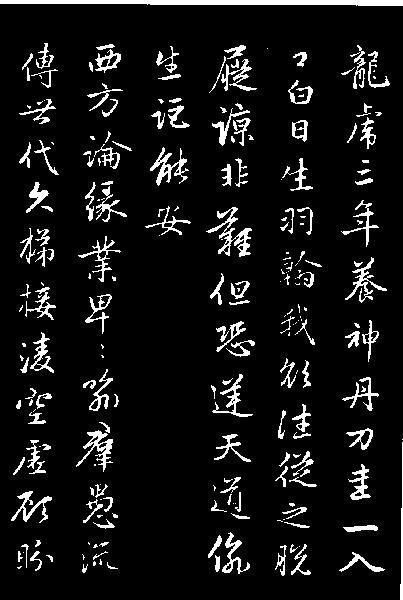 龍虎三年養神丹刀圭一入
口白日生羽翰我欲往從之脫
屣諒非難但恐逆天道偷
生詎能安
西方論緣業卑〻喻羣愚流
傳世代久梯接凌空虛顧盼